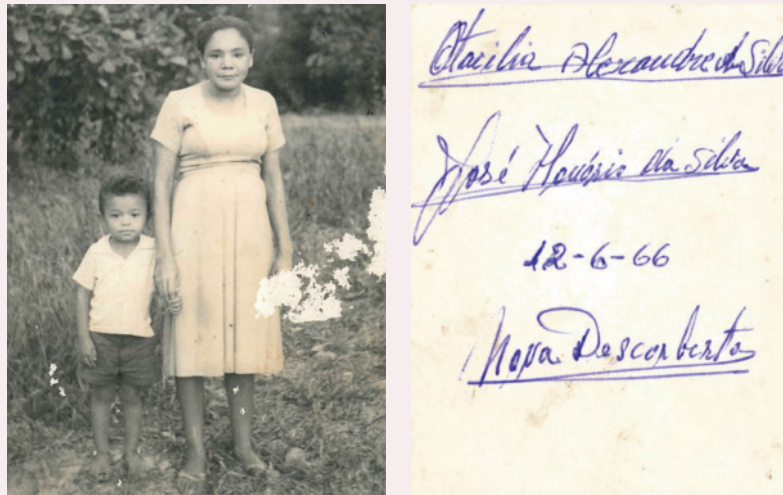 Otacilia Alexandre da Silva
José Honório da Silva
12-6-66
Nova Descorberta